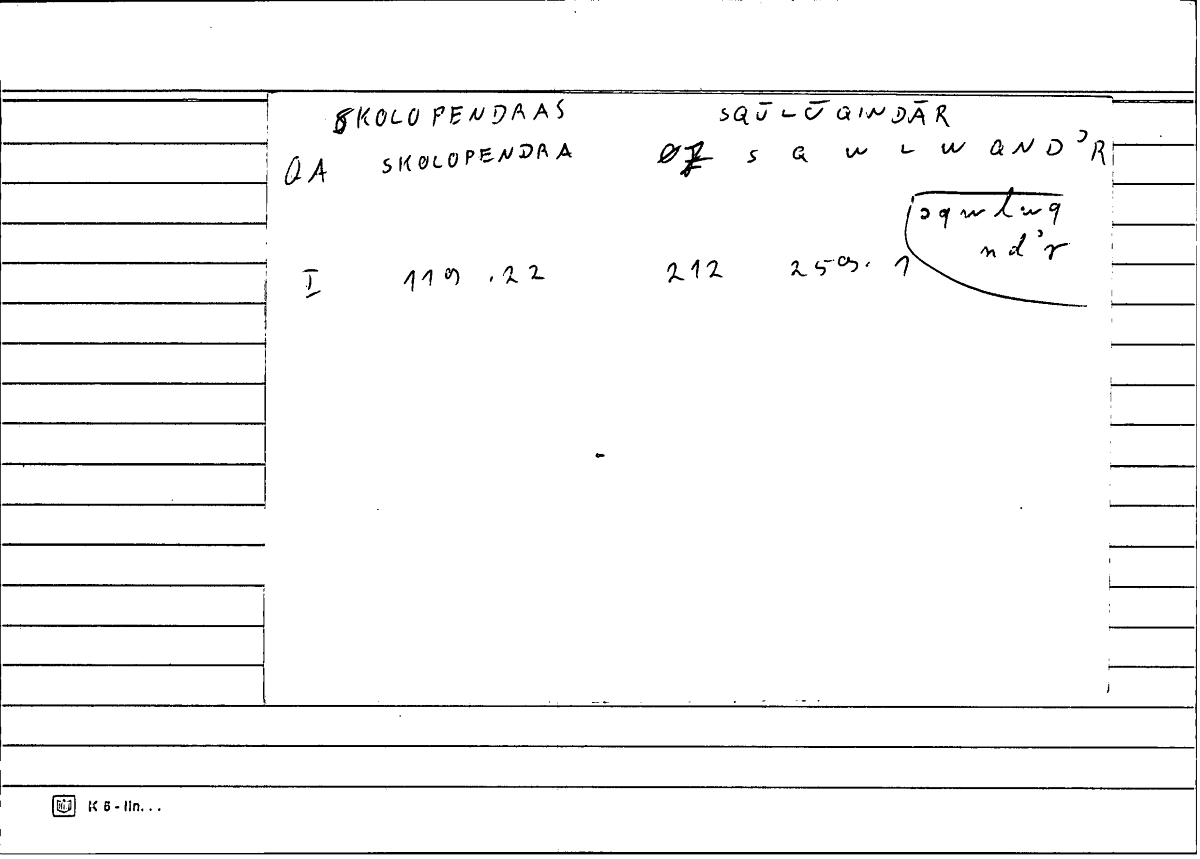 SKOLOPENDRAS SQŪLŪQINDĀR
QA SKOLOPENDRA S Q W L W Q N D ʾ R
ʾqwlwq
ndʾr
I 119 .22 212 259. 1
K 6 - lin...